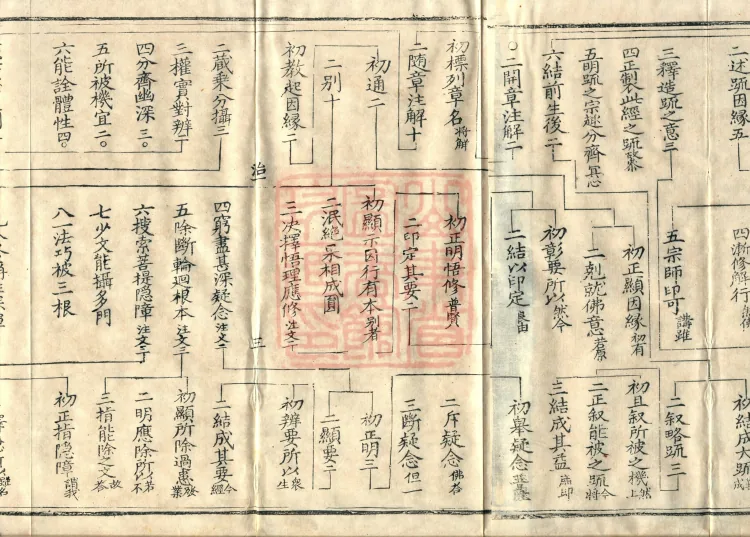 二述疏因緣五
三釋造疏之意三
四正製此經之疏
五明疏之宗趣分齊
六結前生後二
二開章注解二
初標列章名 將解
二隨章注解十
初通二
二別十
初教起因緣二
二藏乘分攝三
三權實對辨丁
四分齊幽深三
五所被機宜二
六能詮體性四
治一
三
四漸修解行
五宗師印可 講雖
初正顯因緣
二剋就佛意 若原
初彰要所以 然今
二結以印定
初正明悟修 普賢
二印定其要二
初顯示因行有本 別者
二泯絕采相成圓
三決擇悟理應修 注文二
四窮盡甚深疑念 注文二
五除斷輪迴根本 注文二
六搜索菩提隱障 注文二丁
七少文能攝多門
八一法巧被三根
初結成大
二叙略疏三
初且叙所被之機 然上
二正叙能被之疏 今將
三結成其益
初舉疑念
二斥疑念 佛若
三斷疑念 但一
初正明三
二顯要二
初辨要所以 衆生
二結成其要 今經
初顯所除過患
二明應除所以 若不
三指能除之文 故答
初正指隱障